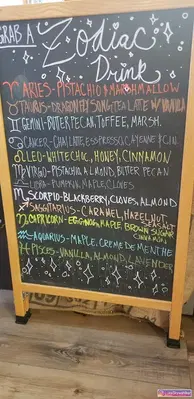 GRAB A
Zodiac
Drink
♈ ARIES-PISTACHIO & MARSHMALLOW
♉ TAURUS-DRAGONFLY SONG TEA LATTE W/ VANILLA
♊ GEMINI-BUTTER PECAN, TOFFEE, MARSH.
♋ CANCER-CHAI LATTE, ESPRESSO, CAYENNE & CIN
♌ LEO-WHITE CHOC, HONEY, CINNAMON
♍ VIRGO-PISTACHIO, ALMOND, BUTTER PECAN
♎ LIBRA-PUMPKIN, MAPLE, CLOVES
♏ SCORPIO-BLACKBERRY, CLOVES, ALMOND
♐ SAGITTARIUS-CARAMEL, HAZELNUT, SEA SALT
♑ CAPRICORN-EGGNOG, MAPLE, BROWN SUGAR
CINNAMON
♒ AQUARIUS-MAPLE, CREME DE MENTHE
♓ PISCES-VANILLA, ALMOND, LAVENDER